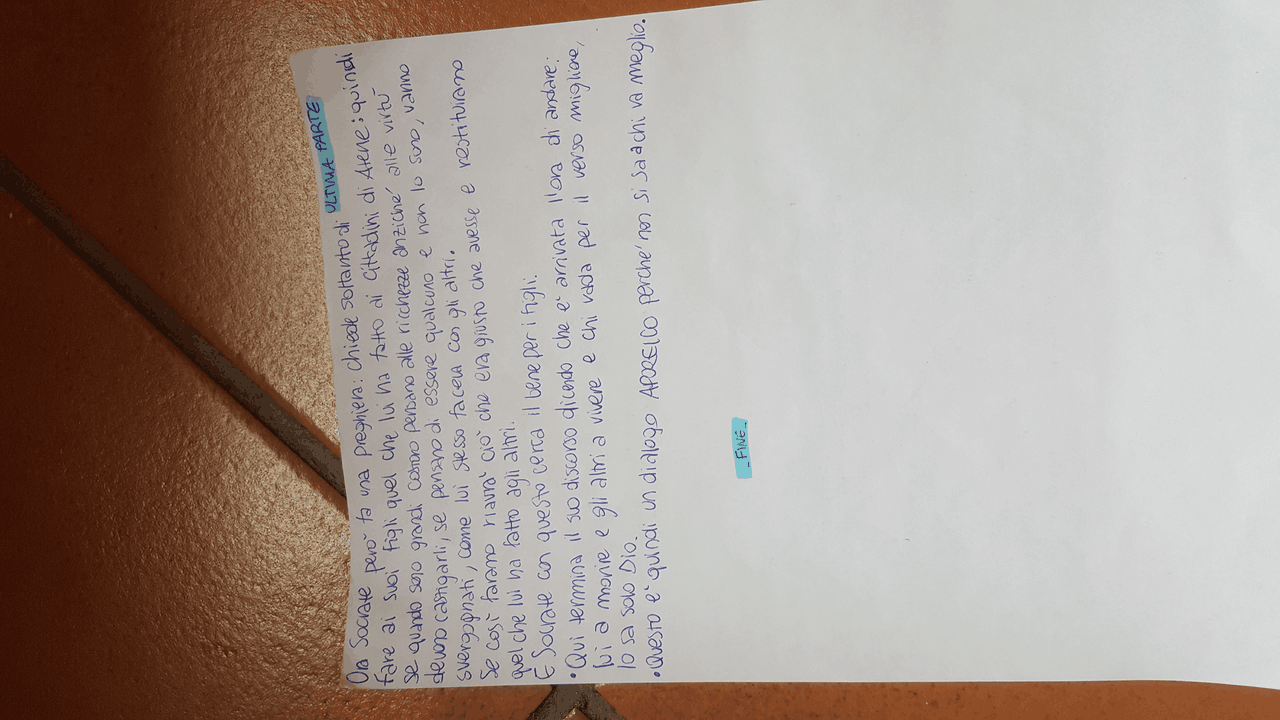 ULTIMA PARTE
Ora Socrate però fa una preghiera: chiede soltanto di
fare ai suoi figli quel che lui ha fatto di Cittadini di Atene: quindi
se quando sono grandi costoro pensano alle ricchezze anziché alle virtù
devono castigarli, se pensano di essere qualcuno e non lo sono, vanno
svergognati, come lui stesso faceva con gli altri.
Se così faranno riavrà ciò che era giusto che avesse e restituiranno
quel che lui ha fatto agli altri.
E Socrate con questo cerca il bene per i figli.
• Qui termina il suo discorso dicendo che è arrivata l'ora di andare:
lui a morire e gli altri a vivere e chi vada per il verso migliore,
lo sa solo Dio.
• Questo è quindi un dialogo APOREICO perché non si sa a chi va meglio.
- FINE -